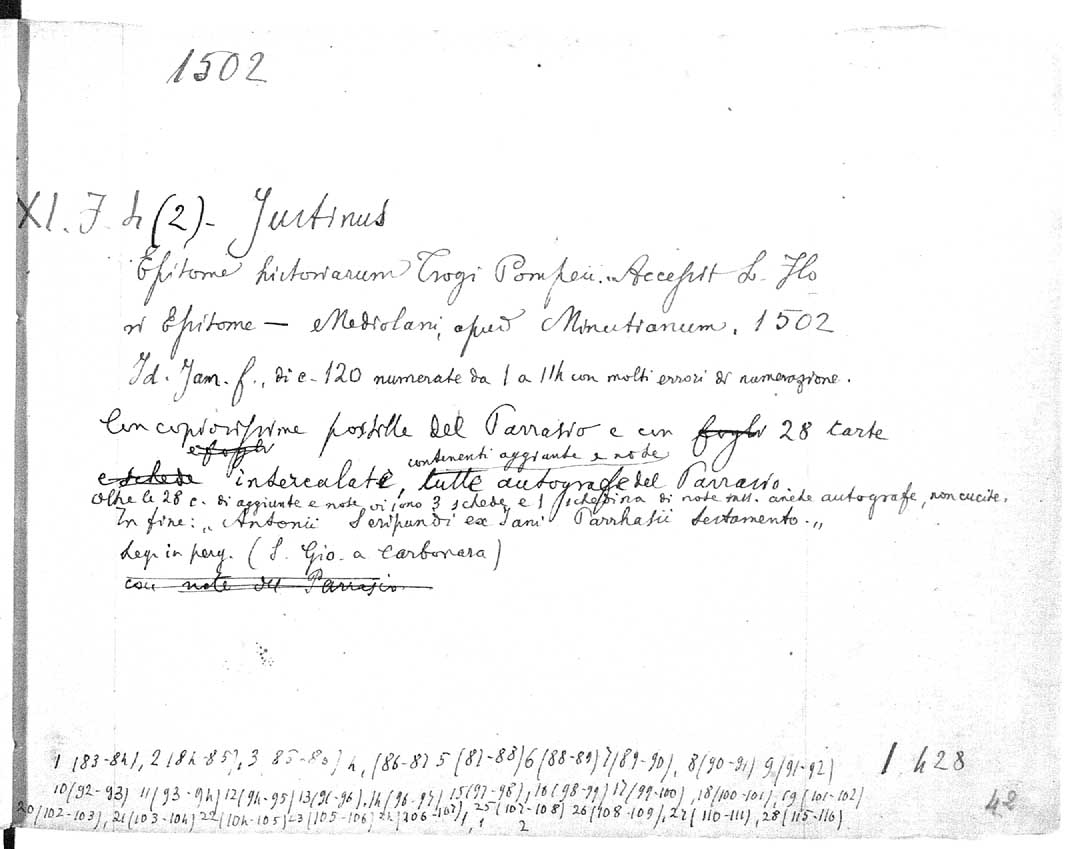 1502
XI. F. 4 (2)- Justinus
Epitome historiarum Trogi Pompeii. Accessit L. Flo
ri Epitome — Mediolani, apud Minutianum, 1502
Id. Jam. f., di c. 120 numerate da 1 a 114 con molti errori di numerazione.
Con copiosissime postille del Parrasio e con fogli 28 carte
e fogli
contenenti aggiunte e note
e schede intercalate, tutte autografe del Parrasio.
Oltre le 28 c. di aggiunte e note vi sono 3 schede e 1 schedina di note mss. anche autografe, non cucite.
In fine: „ Antonii Seripandi ex Jani Parrhasii testamento. „
Leg. in perg. (S. Gio. a Carbonara)
con note del Parrasio
1 (83-84), 2 (84-85), 3 85-86) 4, (86-87 5 (87-88) 6 (88-89) 7 (89-90), 8 (90-91) 9 (91-92)
1 428
10 (92-93) 11 (93-94) 12 (94-95) 13 (95-96), 14 (96-97) 15 (97-98), 16 (98-99) 17 (99-100), 18 (100-101), 19 (101-102)
42
20 (102-103), 21 (103-104) 22 (104-105) 23 (105-106) 24 (106-107), 25 (107-108) 26 (108-109), 27 (110-111), 28 (115-116)
1 2